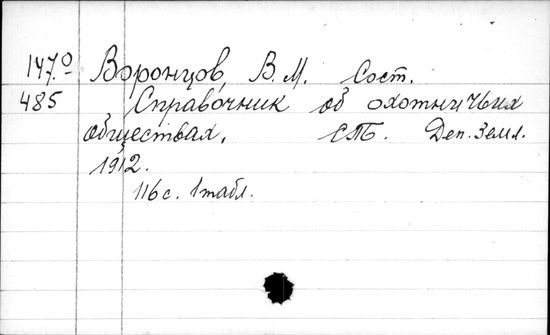 147⁰ Воронцов, В. М. Сост.
485 Справочник об охотничьих
обществах, СПб. Деп. Земл.
1912.
116 с. 1 табл.